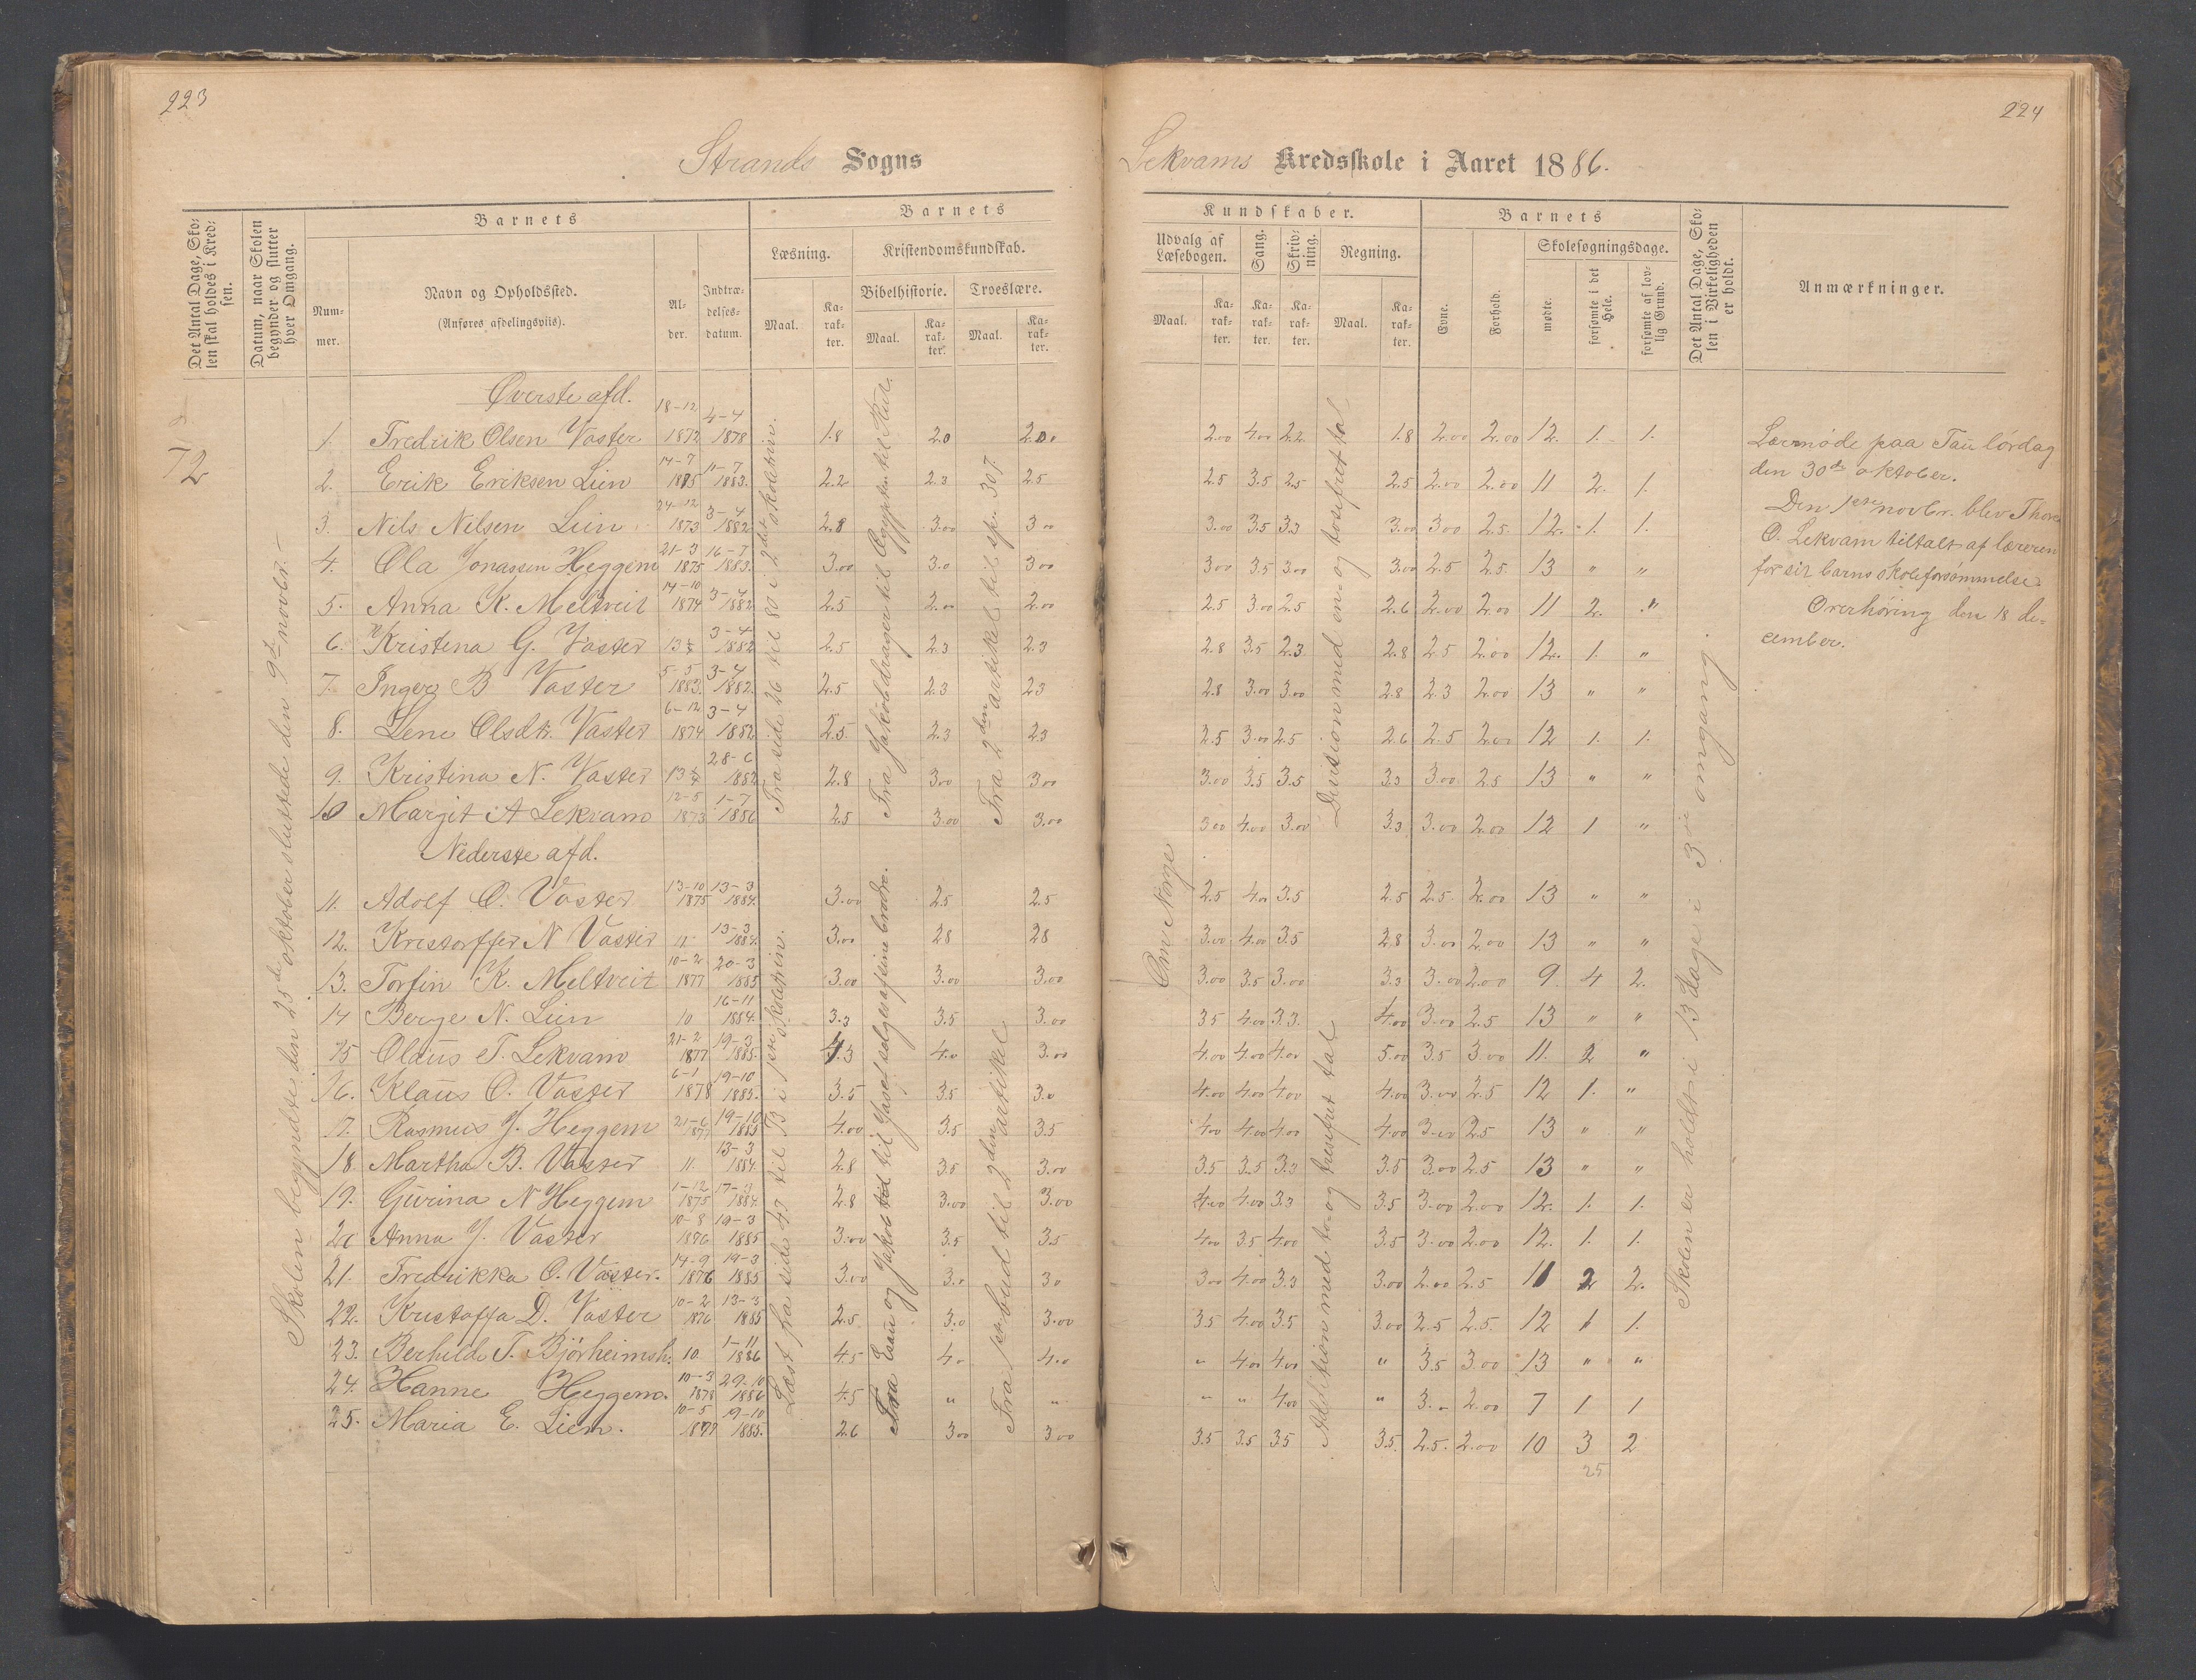 223
Strands Sogns
Det Antal Dage, Skolen skal holdes i Kredsen.
Datum, naar Skolen begynder og slutter hver Omgang.
Barnets
Nummer.
Navn og Opholdssted.
(Anføres afdelingsviis).
Alder.
Indtrædelsesdatum.
Barnets
Læsning.
Kristendomskundskab.
Bibelhistorie.
Troeslære.
Maal.
Karakter.
Maal.
Karakter.
Maal.
Karakter.
72
Skolen begyndte den 25de oktober sluttede den 9de novbr.
Øverste afd.
1. Fredrik Olsen Vaster 18-12 1872 4-4 1878 1.8 2.0 2.00
2. Erik Eriksen Liin 14-7 1875 11-7 1883. 2.2 2.3 2.5
3. Nils Nilsen Liin 24-12 1873 3-4 1882 2.8 3.00 3.00
4. Ola Jonassen Heggem 21-3 1875 16-7 1883. 3.00 3.0 3.00
5. Anna K. Meltveit 14-10 1874 3-4 1882 2.5 2.00 2.00
6. Kristena G. Vaster 13¼ 3-4 1882 2.5 2.3 2.3
7. Inger B Vaster 5-5 1883. 3-4 1882. 2.5 2.3 2.3
8. Lene Olsdtr. Vaster 6-12 1874 3-4 1882 2.5. 2.3 2.3
9. Kristina N. Vaster 13¼ 28-6 1882 2.8 3.00 3.00
10 Margit A Lekvam 12-5 1873 1-7 1886 2.5 3.00 3.00
Nederste afd.
11. Adolf O. Vaster 13-10 1875 13-3 1884. 3.00 2.5 2.5
12. Kristoffer N Vaster 11 13-3 1884. 3.00 2.8 2.8
13. Torfin K. Meltveit 10-2 1877 20-3 1885 3.00 3.00 3.00
14 Berge N. Liin 10 16-11 1884. 3.3 3.5 3.00
15 Olaus T. Lekvam 21-2 1877 19-3 1885. 4.3 4.0 3.00
16. Klaus O. Vaster 6-1 1878 19-10 1885. 3.5 3.5 3.0
17. Rasmus J. Heggem 21-6 1877 19-10 1885 4.00 3.5 3.5
18. Martha B. Vaster 11. 13-3 1884. 2.8 3.5 3.00
19. Gurina N Heggem 1-12 1875 17-3 1884. 2.8 3.00 3.00
20 Anna J. Vaster 10-8 1876 19-3 1885 3.00 3.5 3.5
21. Fredrikka O. Vaster. 14-9 1876 19-3 1885 3.00 3.0 3.0
22. Kristoffa D. Vaster 10-2 1876 13-3 1885 2.5. 3.0 3.00
23. Berhilde T. Bjørheimsh. 10. 1-11 1886 4.5 4.0 4.0
24. Hanne Heggem. 10-3 1878 29-10 1886 4.5 " "
25. Maria E. Liem. 10-5 1877 19-10 1885. 2.6 3.00 3.00
Fra side 26 til 80 i 2det skoletrin.
Fra Jakobdrager til Ægypten til Rut.
Fra 2den artikel til sp. 307.
Læst fra side 47 til B i 1ste skoletrin.
Fra Esau og Jakob til Josef sælges af sine brødre.
Fra 1ste bud til 2den artikel
224
Lekvams Kredsskole i Aaret 1886.
Kundskaber.
Udvalg af Læsebogen.
Sang.
Skrivning.
Regning.
Maal.
Karakter.
Karakter.
Karakter.
Maal.
Karakter.
Barnets
Evne.
Forhold.
Skolesøgningsdage.
mødte.
forsømte i det Hele.
forsømte af lovlig Grund.
Det Antal Dage, Skolen i Virkeligheden er holdt.
Anmærkninger.
2.00 4.00 2.2 1.8 2.00 2.00 12. 1. 1.
2.5 3.5 2.5 2.5 2.00 2.00 11 2. 1.
3.00 3.5 3.3 3.00 3.00 2.5. 12. 1. 1.
3.00 3.5 3.00 3.00 2.5 2.5. 13 " "
2.5 3.00 2.5 2.6 2.00 2.00 11 2. "
2.8 3.5 2.3 2.8 2.5 2.00 12. 1. "
2.8 3.00 3.00 2.8 2.3 2.00 13 " "
2.5 3.00 2.5 2.6 2.5 2.00 12 1. 1.
3.00 3.5 3.5 3.3 3.00 2.5 13 " "
3.00 4.00 3.00 3.3 3.00 2.00 12 1 "
2.5 4.00 3.5 2.5 2.5. 2.00 13 " "
3.00 4.00 3.5 2.8 3.00 2.00 13 " "
3.00 3.5 3.00 3.3 3.00 2.00 9. 4 2.
3.5 4.00 3.3. 4.00 3.00 2.5 13 " "
4.00 4.00 4.00 5.00 3.5 3.00 11. 2 "
4.00 4.00 4.00 4.00 3.00 2.5 12 1. "
4.00 4.00 4.00 4.00 3.00 2.5 13 " "
3.5 3.5 3.3 3.5 3.00 2.5 13 " "
4.00 4.00 3.3 3.5 3.00 2.00 12. 1. 1.
4.00 3.5 4.00 3.5 3.00 2.00 12. 1. 1.
3.00 4.00 3.3 3.00 2.00 2.5 11 2 2.
3.5 4.00 3.5 3.00 2.5 2.5. 12 1 1.
" 4.00 4.00 " 3.5 3.00 13 " "
" " 4.00 " 3." 2.00 7 1 1
3.5 3.5 3.5 3.5. 2.5. 2.00 10 3 2
25
Om Norge
Division med en- og tosifret tal
Addition med to- og tresifret tal
Skolen er holdt i 13 dage i 3die omgang.
Lærmøde paa Tau lørdag
den 30de oktober.
Den 1ste novbr. blev Thore
O. Lekvam tiltalt af læreren
for sit barns skoleforsømmelse.
Overhøring den 18 de-
cember.